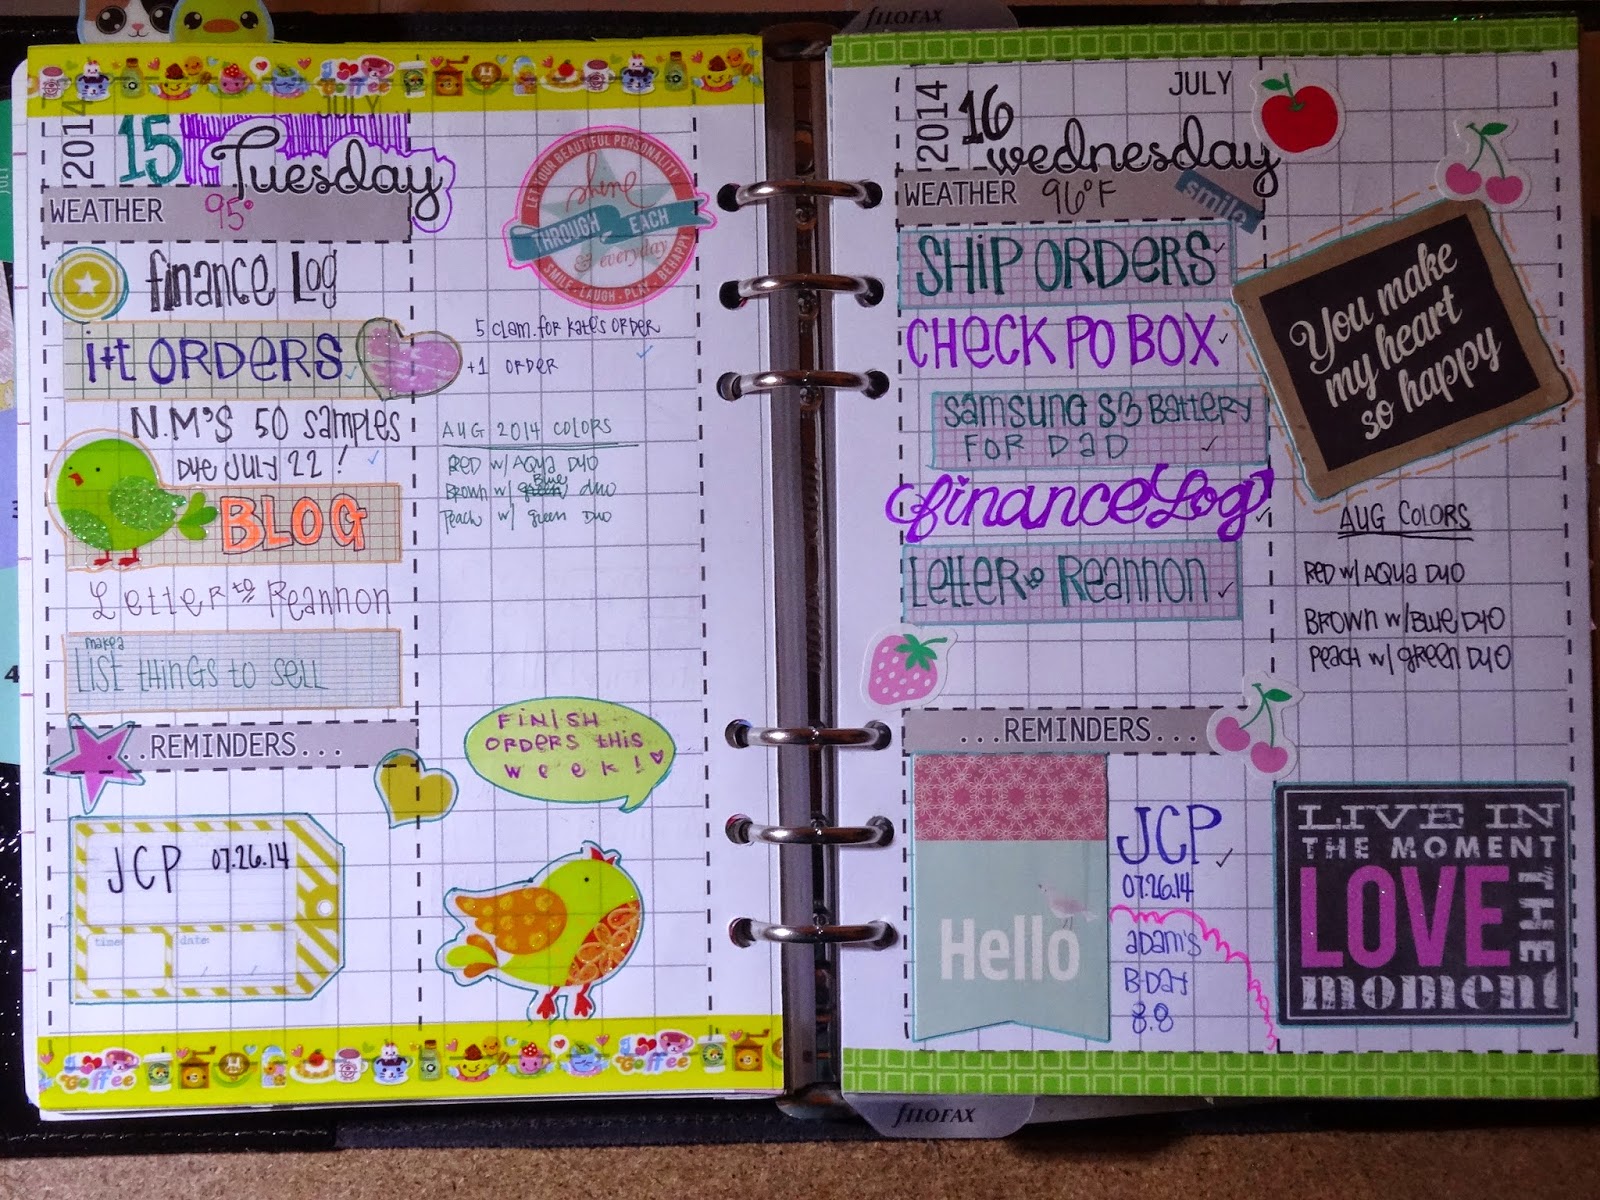 FILOFAX
I
Coffee
2014
JULY
15
Tuesday
WEATHER 95°
LET YOUR BEAUTIFUL PERSONALITY
shine
THROUGH EACH
& everyday
SMILE · LAUGH · PLAY · BE HAPPY
finance Log
i+t ORDERS
5 clam. for Kate's order
+1 ORDER
N.M'S 50 samples
Due July 22!
AUG 2014 COLORS
RED w/ AQUA DUO
Blue
Brown w/ green duo
Peach w/ green DUO
BLOG
Letter to Reannon
make a
List things to sell
...REMINDERS...
FINISH
ORDERS THIS
week!
JCP 07.26.14
time:
date:
I
Coffee
2014
JULY
16
wednesday
WEATHER 96°F
smile
SHIP ORDERS
CHECK PO BOX
You make
my heart
so happy
Samsung S3 Battery
FOR DAD
finance Log
Letter to Reannon
AUG COLORS
RED w/ AQUA DUO
BROWN w/ BLUE DUO
PEACH w/ green DUO
...REMINDERS...
Hello
JCP
07.26.14
aDam's
B-Day
8.8
LIVE IN
THE MOMENT
LOVE
THE
moment
FILOFAX